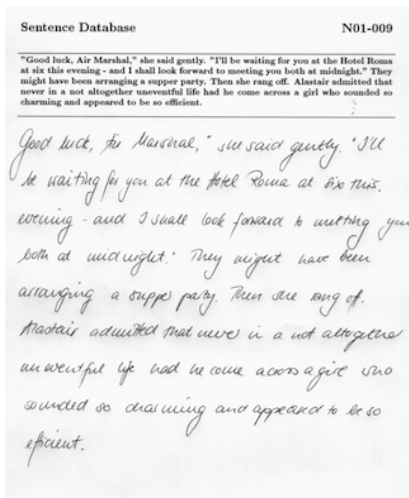 Sentence Database N01-009
"Good luck, Air Marshal," she said gently. "I'll be waiting for you at the Hotel Roma
at six this evening - and I shall look forward to meeting you both at midnight." They
might have been arranging a supper party. Then she rang off. Alastair admitted that
never in a not altogether uneventful life had he come across a girl who sounded so
charming and appeared to be so efficient.
Good luck, Air Marshal," she said gently. "I'll
be waiting for you at the Hotel Roma at six this.
evening - and I shall look forward to metting you
both at midnight." They might have been
arranging a supper party. Then she rang off.
Alastair admitted that never in a not altogether
uneventful life had he come across a girl who
sounded so charming and appeared to be so
efficient.